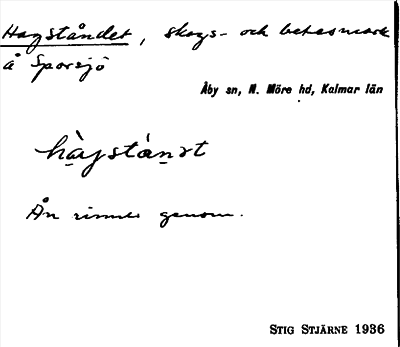 Hagståndet, skogs- och betesmark
å Sporsjö
Åby sn, N. Möre hd, Kalmar län
hàgstánət
Ån rinner genom.
STIG STJÄRNE 1936